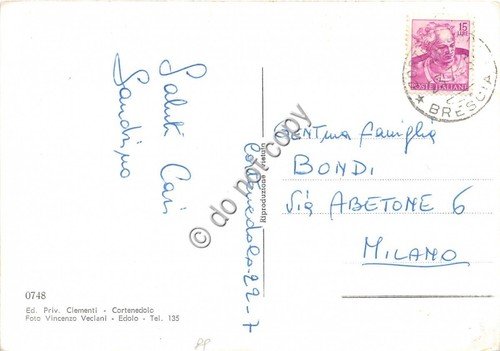 Saluti Cari
Sandrina
Cortenedolo 22-7
Riproduzione vietata
15
POSTE ITALIANE
BRESCIA
GENT.ma famiglia
BONDI
Via ABETONE 6
MILANO
© do not copy
0748
Ed. Priv. Clementi - Cortenedolo
Foto Vincenzo Veclani - Edolo - Tel. 135